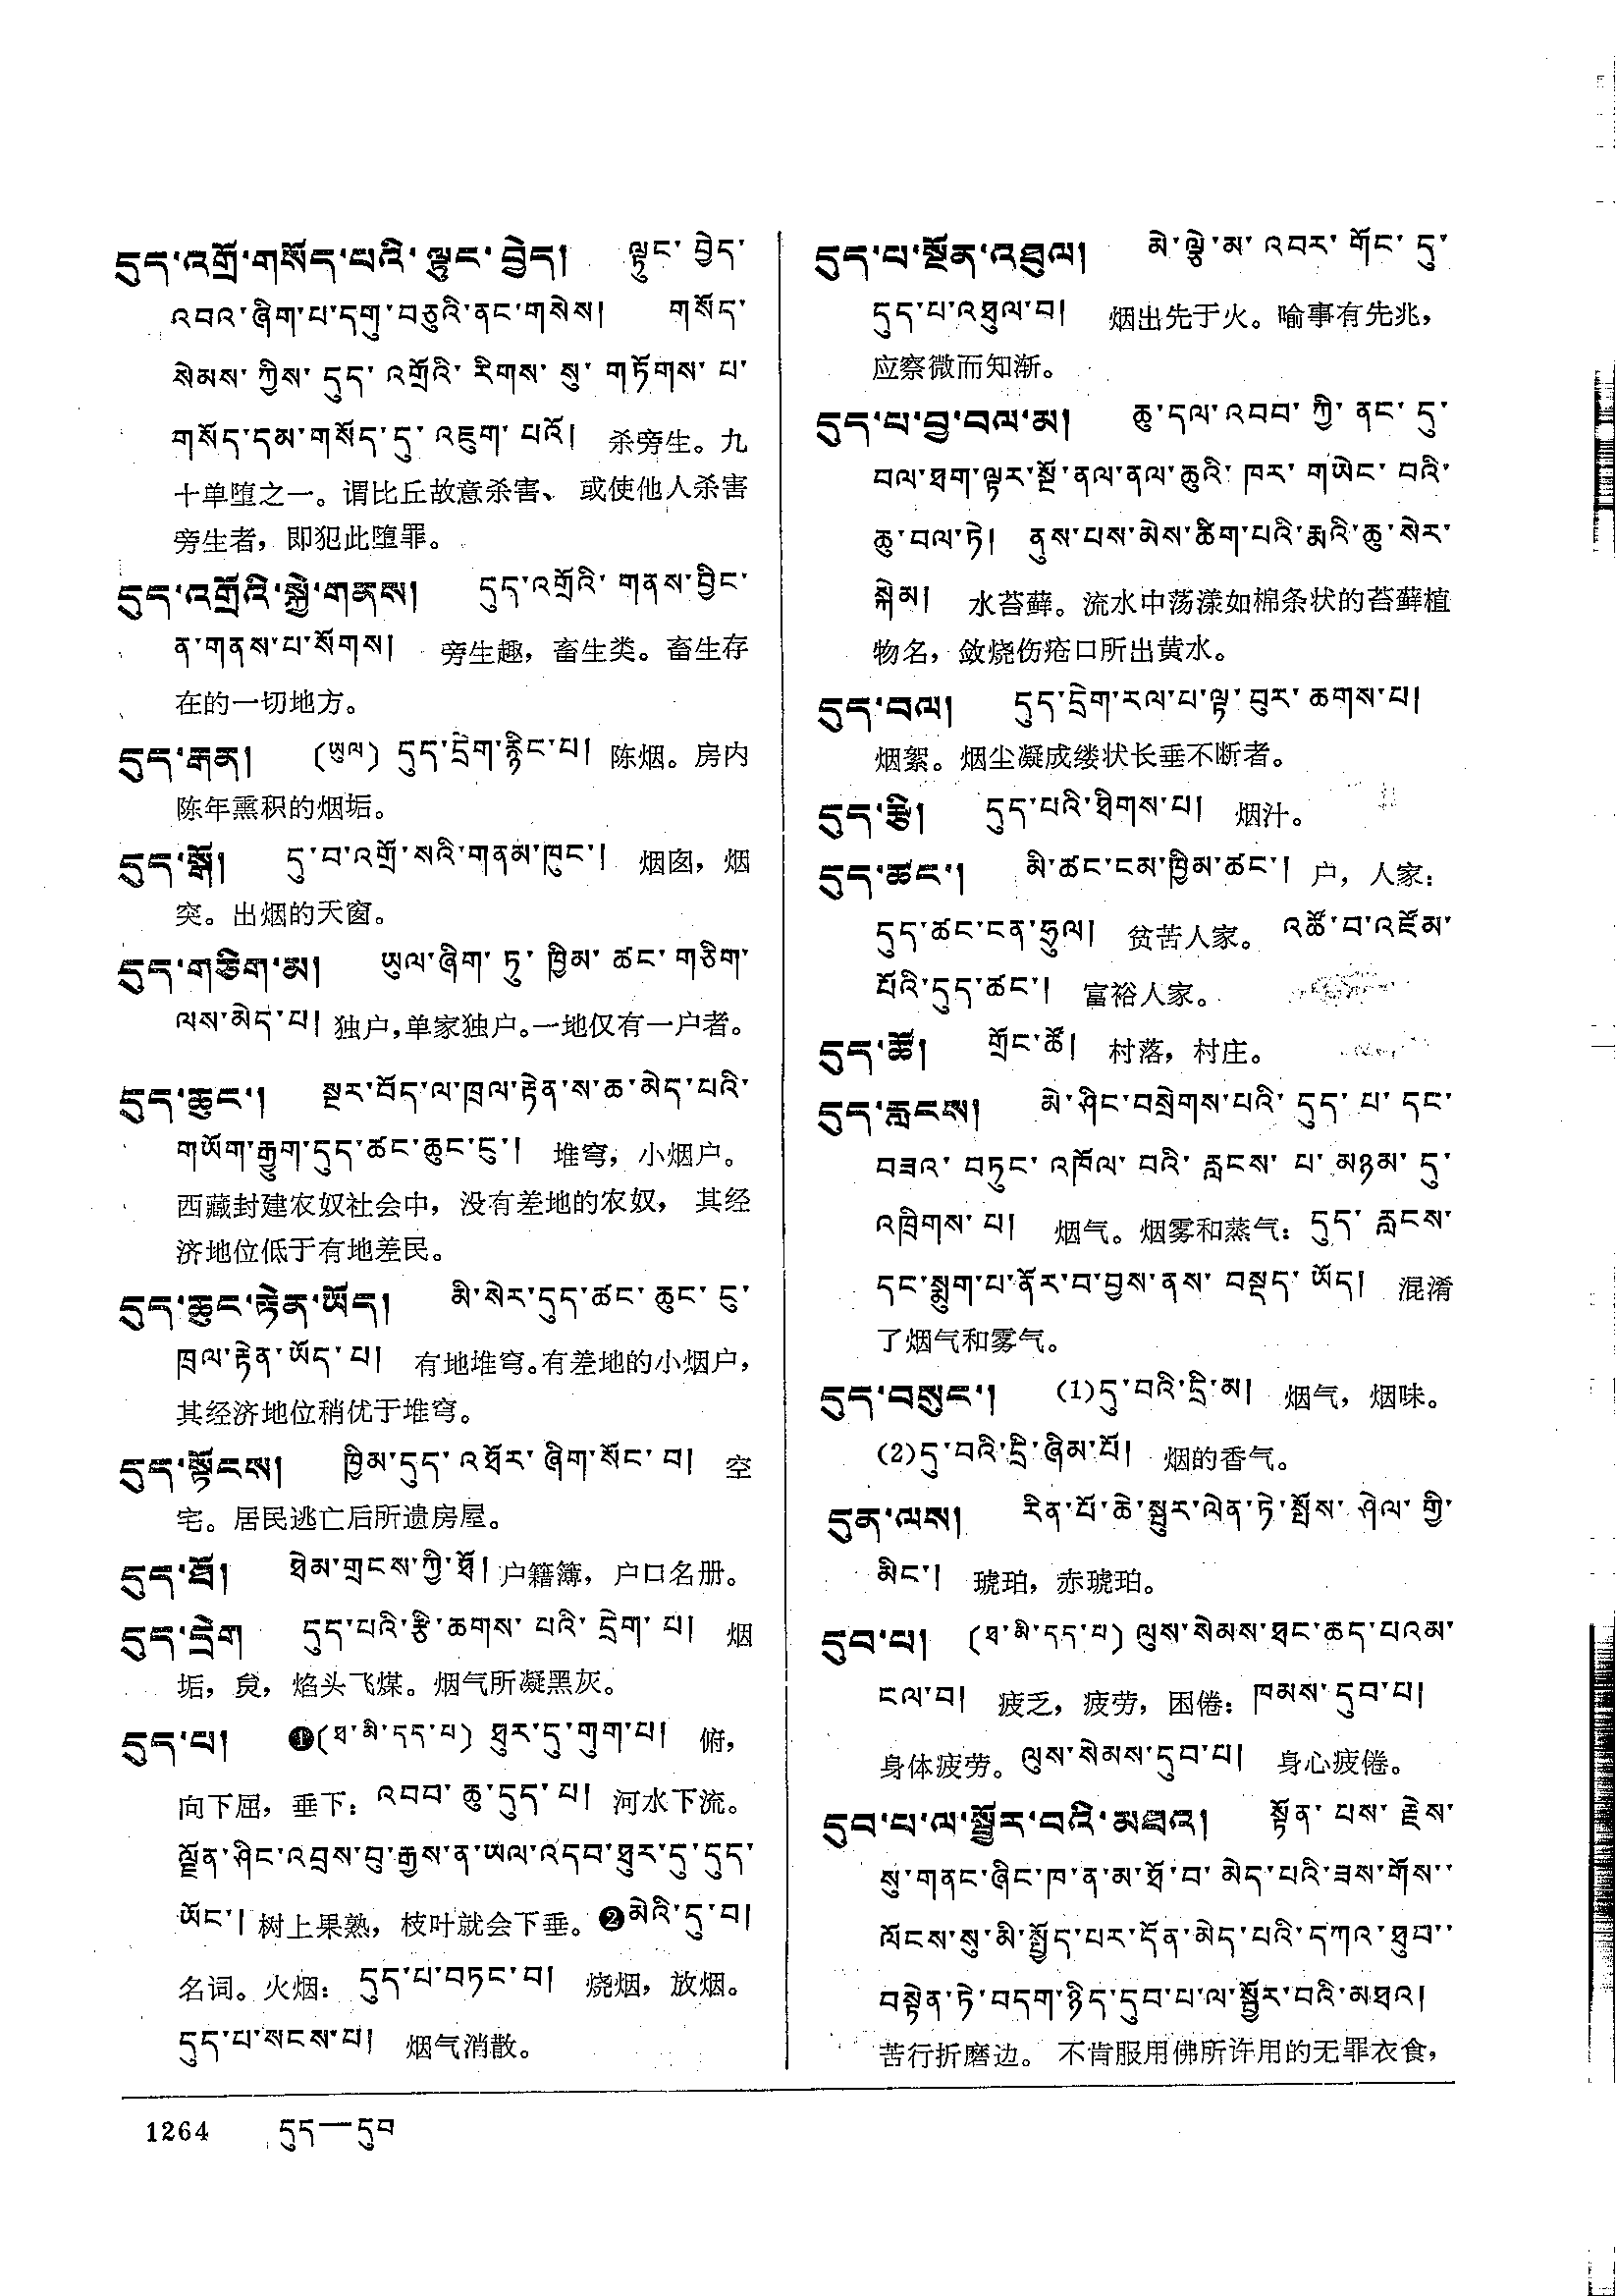 དུད་འགྲོ་གསོད་པའི་ལྟུང་བྱེད། ལྟུང་བྱེད་
འབའ་ཞིག་པ་དགུ་བཅུའི་ནང་གསེས། གསོད་
སེམས་ཀྱིས་དུད་འགྲོའི་རིགས་སུ་གཏོགས་པ་
གསོད་དམ་གསོད་དུ་འཇུག་པའོ། 杀旁生。九
十单堕之一。谓比丘故意杀害、或使他人杀害
旁生者，即犯此堕罪。
དུད་འགྲོའི་སྐྱེ་གནས། དུད་འགྲོའི་གནས་བྱིང་
ན་གནས་པ་སོགས། 旁生趣，畜生类。畜生存
在的一切地方。
དུད་རྒན། (ཡུལ) དུད་དྲེག་རྙིང་པ། 陈烟。房内
陈年熏积的烟垢。
དུད་སྒོ། དུ་བ་འགྲོ་སའི་གནམ་ཁུང་། 烟囱，烟
突。出烟的天窗。
དུད་གཅིག་མ། ཡུལ་ཞིག་ཏུ་ཁྱིམ་ཚང་གཅིག་
ལས་མེད་པ། 独户，单家独户。一地仅有一户者。
དུད་ཆུང་། སྔར་བོད་ལ་ཁྲལ་རྟེན་ས་ཆ་མེད་པའི་
གཡོག་རྒྱུག་དུད་ཚང་ཆུང་ངུ་། 堆穷，小烟户。
西藏封建农奴社会中，没有差地的农奴，其经
济地位低于有地差民。
དུད་ཆུང་རྟེན་ཡོད། མི་སེར་དུད་ཚང་ཆུང་ངུ་
ཁྲལ་རྟེན་ཡོད་པ། 有地堆穷。有差地的小烟户，
其经济地位稍优于堆穷。
དུད་སྟོངས། ཁྱིམ་དུད་འཐོར་ཞིག་སོང་བ། 空
宅。居民逃亡后所遗房屋。
དུད་ཐོ། ཐེམ་གྲངས་ཀྱི་ཐོ། 户籍簿，户口名册。
དུད་དྲེག དུད་པའི་རྩི་ཆགས་པའི་དྲེག་པ། 烟
垢，炱，焰头飞煤。烟气所凝黑灰。
དུད་པ། ❶(ཐ་མི་དད་པ) ཐུར་དུ་གུག་པ། 俯，
向下屈，垂下：འབབ་ཆུ་དུད་པ། 河水下流。
ལྗོན་ཤིང་འབྲས་བུ་རྒྱས་ན་ཡལ་འདབ་ཐུར་དུ་དུད་
ཡོང་། 树上果熟，枝叶就会下垂。❷མེའི་དུ་བ།
名词。火烟：དུད་པ་བཏང་བ། 烧烟，放烟。
དུད་པ་སངས་པ། 烟气消散。
དུད་པ་སྔོན་འཐུལ། མེ་ལྕེ་མ་འབར་གོང་དུ་
དུད་པ་འཐུལ་བ། 烟出先于火。喻事有先兆，
应察微而知渐。
དུད་པ་བྱ་བལ་མ། ཆུ་དལ་འབབ་ཀྱི་ནང་དུ་
བལ་ཐག་ལྟར་སྔོ་ནལ་ནལ་ཆུའི་ཁར་གཡེང་བའི་
ཆུ་བལ་ཏེ། ནུས་པས་མེས་ཚིག་པའི་རྨའི་ཆུ་སེར་
སྐེམ། 水苔藓。流水中荡漾如棉条状的苔藓植
物名，敛烧伤疮口所出黄水。
དུད་བལ། དུད་དྲེག་རལ་པ་ལྟ་བུར་ཆགས་པ།
烟絮。烟尘凝成缕状长垂不断者。
དུད་རྩི། དུད་པའི་ཐིགས་པ། 烟汁。
དུད་ཚང་། མི་ཚང་ངམ་ཁྱིམ་ཚང་། 户，人家：
དུད་ཚང་ངན་ཧྲུལ། 贫苦人家。འཚོ་བ་འཛོམ་
པོའི་དུད་ཚང་། 富裕人家。
དུད་ཚོ། གྲོང་ཚོ། 村落，村庄。
དུད་རླངས། མེ་ཤིང་བསྲེགས་པའི་དུད་པ་དང་
བཟའ་བཏུང་འཁོལ་བའི་རླངས་པ་མཉམ་དུ་
འཁྲིགས་པ། 烟气。烟雾和蒸气：དུད་རླངས་
དང་སྨུག་པ་ནོར་བ་བྱས་ནས་བསྡད་ཡོད། 混淆
了烟气和雾气。
དུད་བསུང་། (1)དུ་བའི་དྲི་མ། 烟气，烟味。
(2)དུ་བའི་དྲི་ཞིམ་པོ། 烟的香气。
དུན་ལས། རིན་པོ་ཆེ་སྦུར་ལེན་ཏེ་སྤོས་ཤེལ་གྱི་
མིང་། 琥珀，赤琥珀。
དུབ་པ། (ཐ་མི་དད་པ) ལུས་སེམས་ཐང་ཆད་པའམ་
ངལ་བ། 疲乏，疲劳，困倦：ཁམས་དུབ་པ།
身体疲劳。ལུས་སེམས་དུབ་པ། 身心疲倦。
དུབ་པ་ལ་སྦྱོར་བའི་མཐའ། སྟོན་པས་རྗེས་
སུ་གནང་ཞིང་ཁ་ན་མ་ཐོ་བ་མེད་པའི་ཟས་གོས་
ལོངས་སུ་མི་སྤྱོད་པར་དོན་མེད་པའི་དཀའ་ཐུབ་
བསྟེན་ཏེ་བདག་ཉིད་དུབ་པ་ལ་སྦྱོར་བའི་མཐའ།
苦行折磨边。不肯服用佛所许用的无罪衣食，
1264 དུད—དུབ